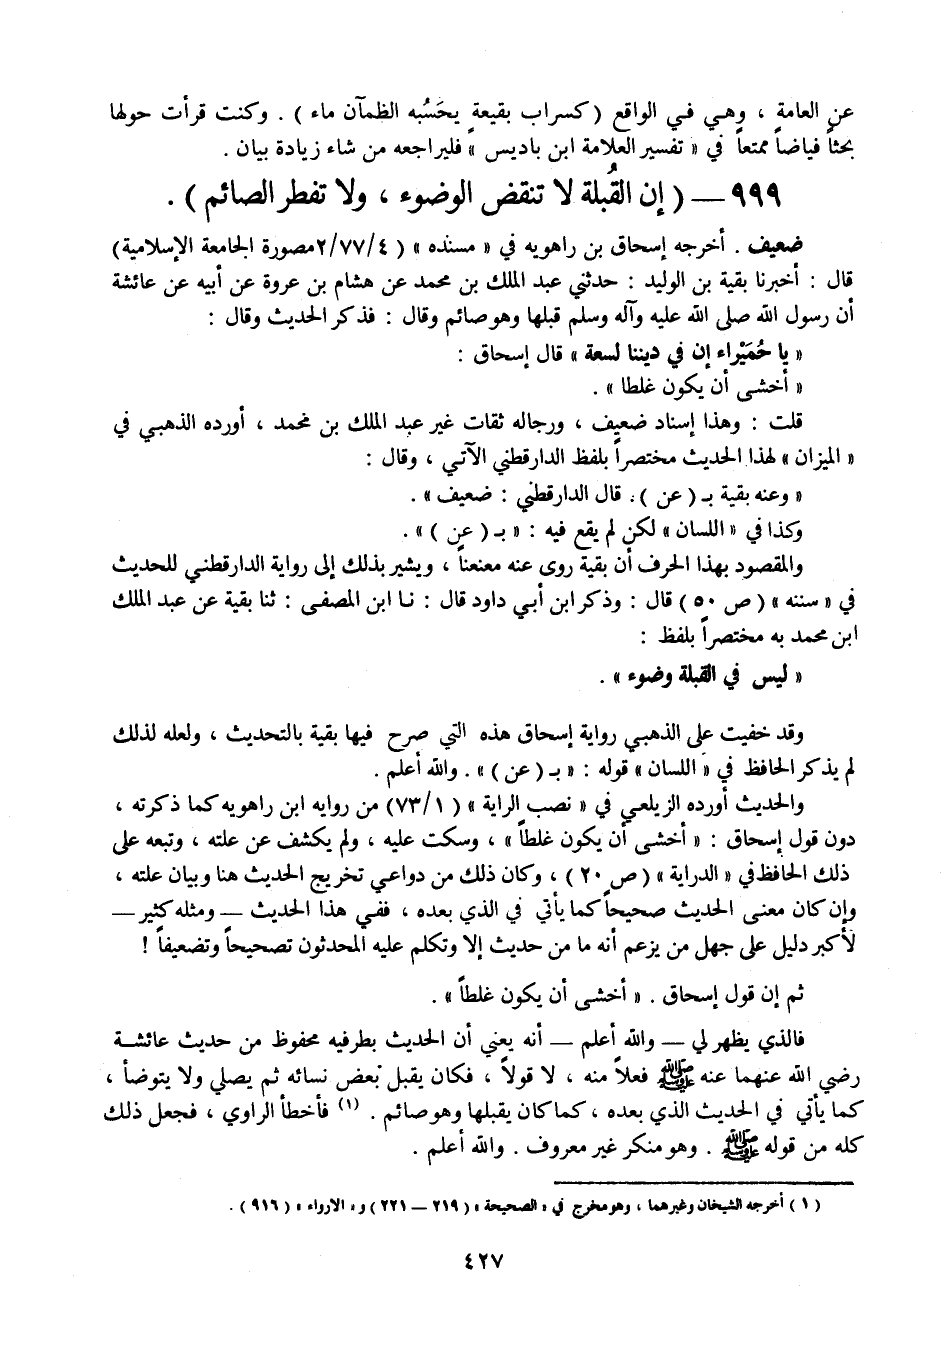 عن العامة ، وهي في الواقع ( كسراب بقيعة يحَسُبه الظمآن ماء ) . وكنت قرأت حولها
بحثاً فياضاً ممتعاً في « تفسير العلامة ابن باديس » فليراجعه من شاء زيادة بيان .
٩٩٩ — ( إن القُبلة لا تنقض الوضوء ، ولا تفطر الصائم ) .
ضعيف . أخرجه إسحاق بن راهويه في « مسنده » ( ٤/٧٧/٢ مصورة الجامعة الإسلامية)
قال : أخبرنا بقية بن الوليد : حدثني عبد الملك بن محمد عن هشام بن عروة عن أبيه عن عائشة
أن رسول الله صلى الله عليه وآله وسلم قبلها وهو صائم وقال : فذكر الحديث وقال :
« يا حُمَيْراء إن في ديننا لسعة » قال إسحاق :
« أخشى أن يكون غلطا » .
قلت : وهذا إسناد ضعيف ، ورجاله ثقات غير عبد الملك بن محمد ، أورده الذهبي في
« الميزان » لهذا الحديث مختصراً بلفظ الدارقطني الآتي ، وقال :
« وعنه بقية بـ ( عن ) . قال الدارقطني : ضعيف » .
وكذا في « اللسان » لكن لم يقع فيه : « بـ ( عن ) » .
والمقصود بهذا الحرف أن بقية روى عنه معنعناً ، ويشير بذلك إلى رواية الدارقطني للحديث
في « سننه » ( ص ٥٠ ) قال : وذكر ابن أبي داود قال : نا ابن المصفى : ثنا بقية عن عبد الملك
ابن محمد به مختصراً بلفظ :
« ليس في القبلة وضوء » .
وقد خفيت على الذهبي رواية إسحاق هذه التي صرح فيها بقية بالتحديث ، ولعله لذلك
لم يذكر الحافظ في « اللسان » قوله : « بـ ( عن ) » . والله أعلم .
والحديث أورده الزيلعي في « نصب الراية » ( ١/٧٣) من روايه ابن راهويه كما ذكرته ،
دون قول إسحاق : « أخشى أن يكون غلطاً » ، وسكت عليه ، ولم يكشف عن علته ، وتبعه على
ذلك الحافظ في « الدراية » ( ص ٢٠ ) ، وكان ذلك من دواعي تخريج الحديث هنا وبيان علته ،
وإن كان معنى الحديث صحيحاً كما يأتي في الذي بعده ، ففي هذا الحديث — ومثله كثير —
لأكبر دليل على جهل من يزعم أنه ما من حديث إلا وتكلم عليه المحدثون تصحيحاً وتضعيفاً !
ثم إن قول إسحاق . « أخشى أن يكون غلطاً » .
فالذي يظهر لي — والله أعلم — أنه يعني أن الحديث بطرفيه محفوظ من حديث عائشة
رضي الله عنهما عنه ﷺ فعلاً منه ، لا قولاً ، فكان يقبل بعض نسائه ثم يصلي ولا يتوضأ ،
كما يأتي في الحديث الذي بعده ، كما كان يقبلها وهو صائم . (١) فأخطأ الراوي ، فجعل ذلك
كله من قوله ﷺ . وهو منكر غير معروف . والله أعلم .
( ١ ) أخرجه الشيخان وغيرهما ، وهو مخرج في « الصحيحة » ( ٢١٩ — ٢٢١ ) و « الارواء » ( ٩١٦ ) .
٤٢٧